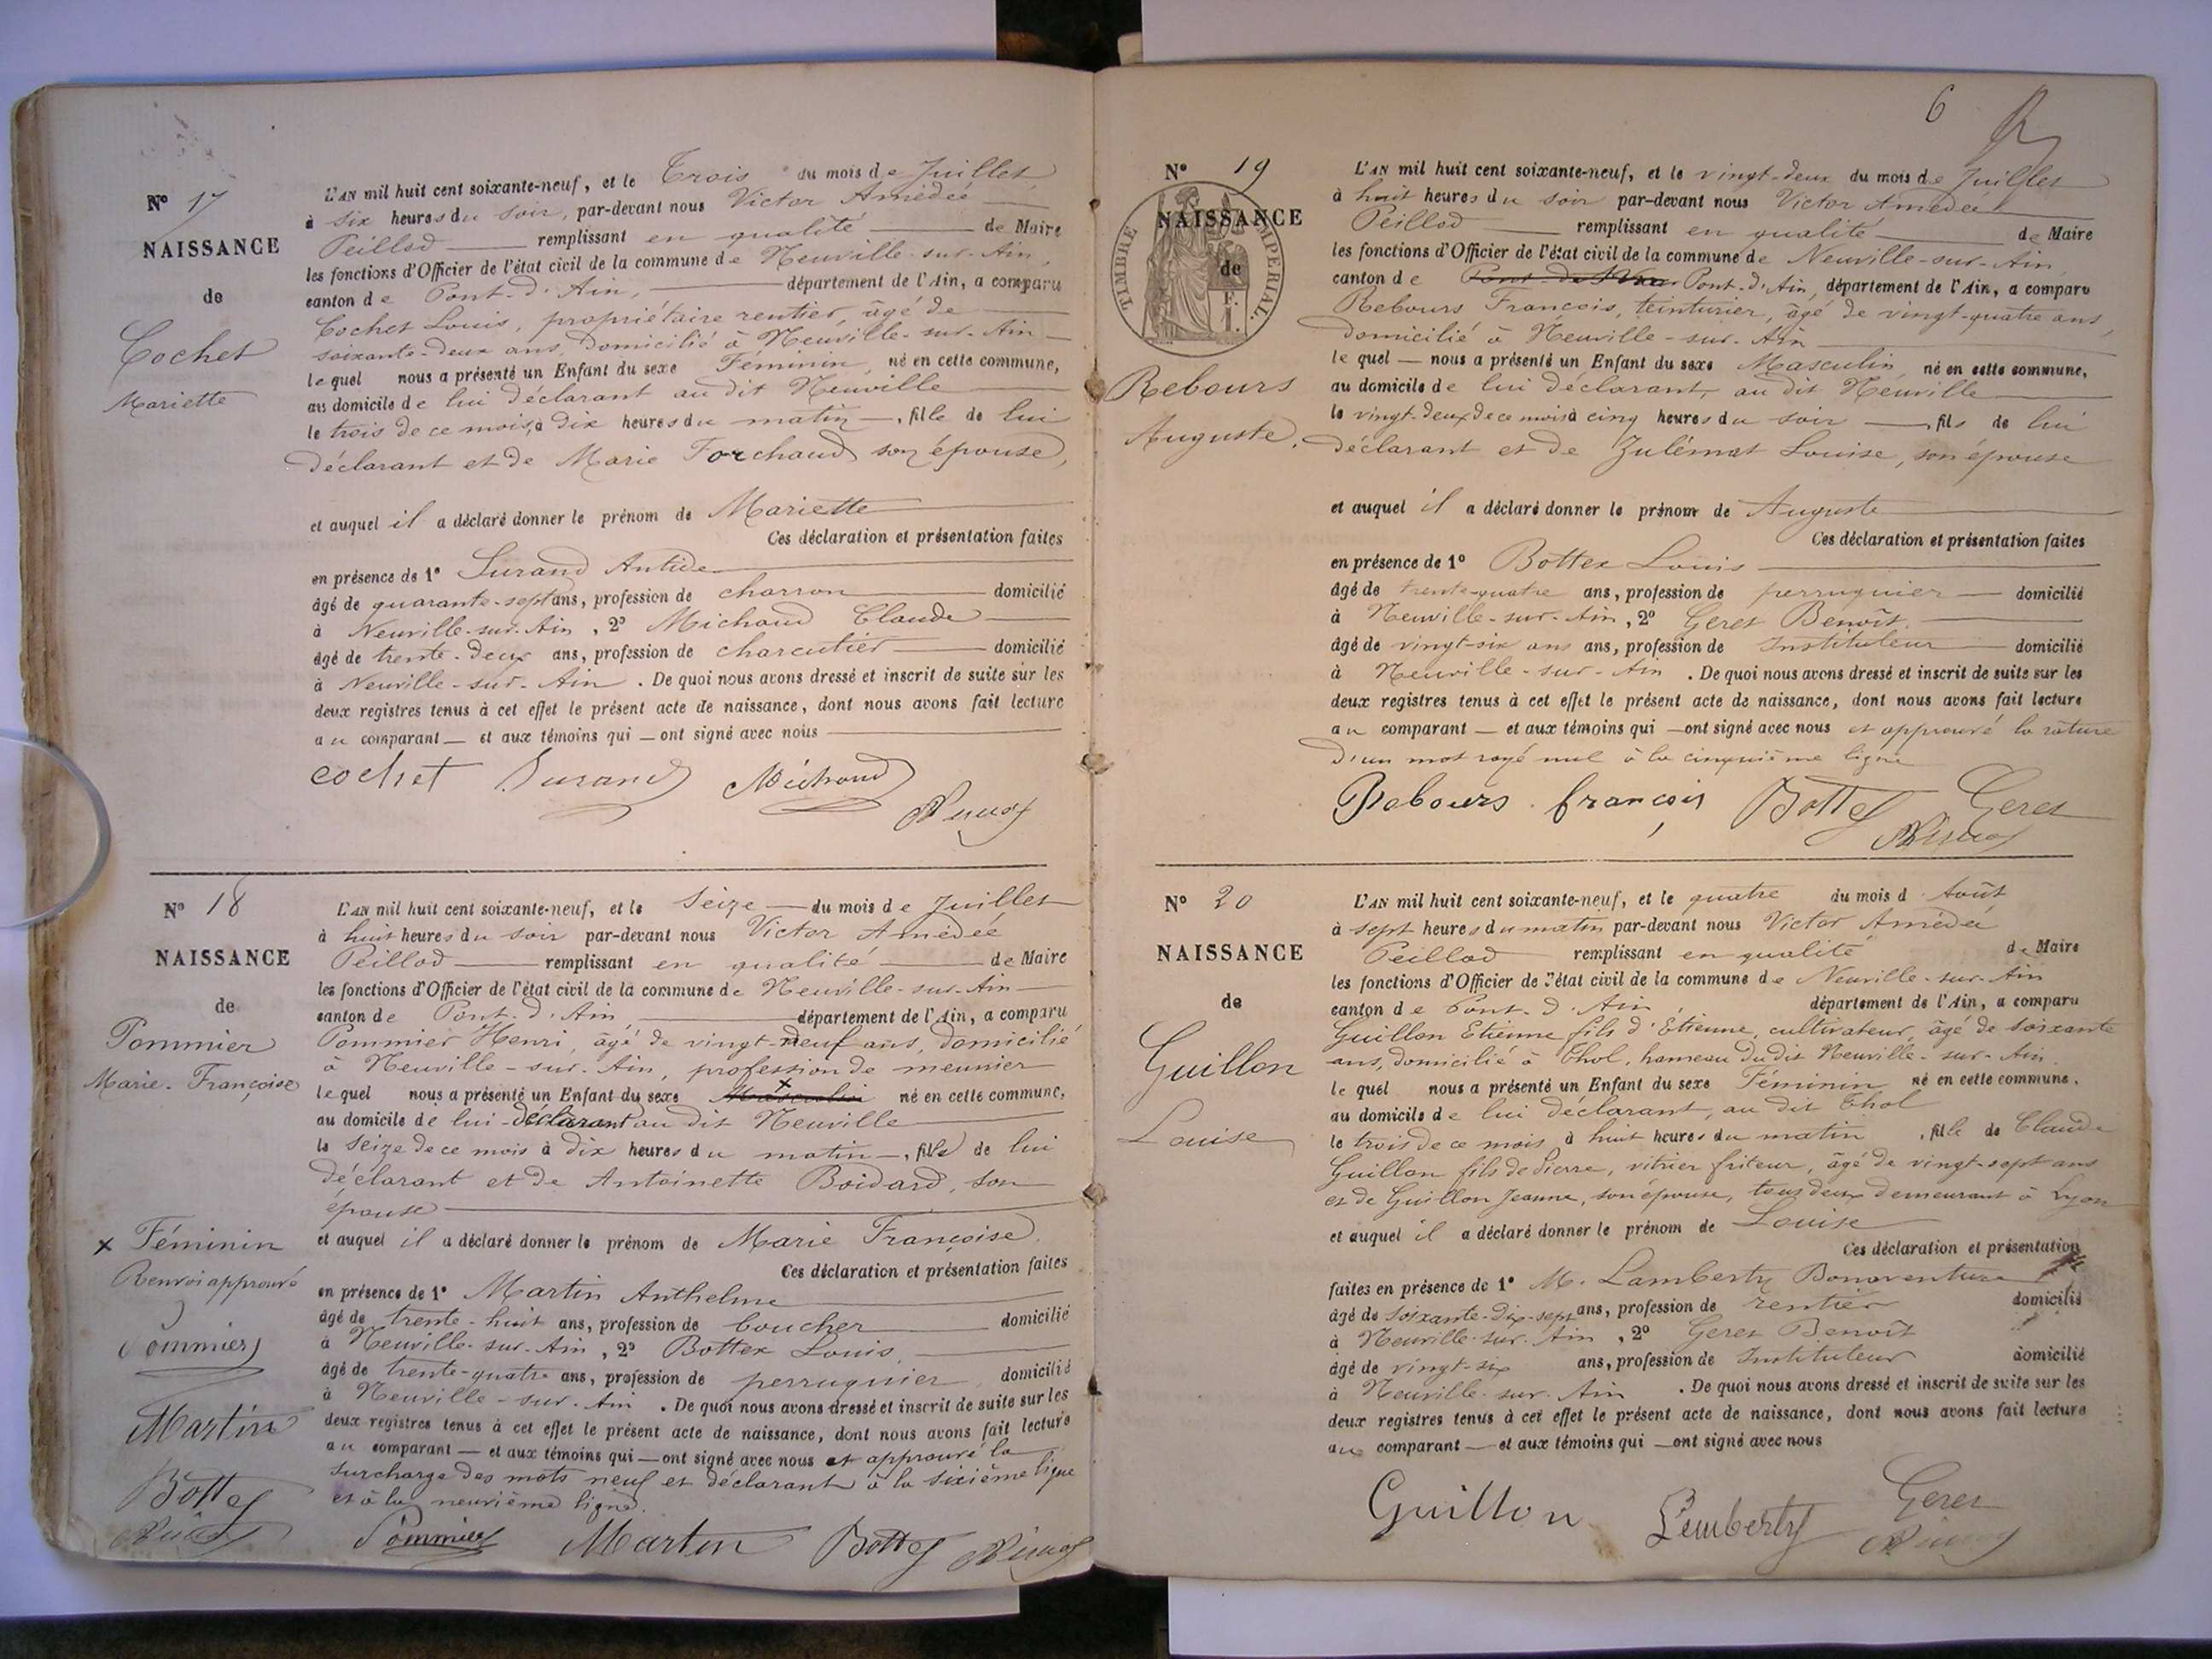 N° 17
NAISSANCE
de
Cochet
Mariette
L'AN mil huit cent soixante-neuf, et le Trois du mois de Juillet
à six heures du soir, par-devant nous Victor Amédée
Peillod remplissant en qualité de Maire
les fonctions d'Officier de l'état civil de la commune de Neuville-sur-Ain,
canton de Pont-d'Ain, département de l'Ain, a comparu
Cochet Louis, propriétaire rentier, âgé de
soixante-deux ans, domicilié à Neuville-sur-Ain
le quel nous a présenté un Enfant du sexe Féminin, né en cette commune,
au domicile de lui déclarant au dit Neuville
le trois de ce mois, à dix heures du matin, fille de lui
déclarant et de Marie Forchaud son épouse,
et auquel il a déclaré donner le prénom de Mariette
Ces déclaration et présentation faites
en présence de 1° Antide
âgé de quarante-sept ans, profession de charron domicilié
à Neuville-sur-Ain, 2° Michaud Claude
âgé de trente-deux ans, profession de charcutier domicilié
à Neuville-sur-Ain. De quoi nous avons dressé et inscrit de suite sur les
deux registres tenus à cet effet le présent acte de naissance, dont nous avons fait lecture
au comparant et aux témoins qui ont signé avec nous
cochet Michaud
N° 18
NAISSANCE
de
Pommier
Marie-Françoise
x Féminin
Renvoi approuvé
Pommier
Martin
Bottex
L'AN mil huit cent soixante-neuf, et le Seize du mois de Juillet
à huit heures du soir par-devant nous Victor Amédée
Peillod remplissant en qualité de Maire
les fonctions d'Officier de l'état civil de la commune de Neuville-sur-Ain
canton de Pont-d'Ain, département de l'Ain, a comparu
Pommier Henri, âgé de vingt-neuf ans, domicilié
à Neuville-sur-Ain, profession de meunier
le quel nous a présenté un Enfant du sexe Masculin x né en cette commune,
au domicile de lui déclarant au dit Neuville
le seize de ce mois à dix heures du matin, fille de lui
déclarant et de Antoinette Boidard, son
épouse
et auquel il a déclaré donner le prénom de Marie Françoise.
Ces déclaration et présentation faites
en présence de 1° Martin Anthelme
âgé de trente-huit ans, profession de boucher domicilié
à Neuville-sur-Ain, 2° Bottex Louis,
âgé de trente-quatre ans, profession de perruquier domicilié
à Neuville-sur-Ain. De quoi nous avons dressé et inscrit de suite sur les
deux registres tenus à cet effet le présent acte de naissance, dont nous avons fait lecture
au comparant et aux témoins qui ont signé avec nous et approuvé la
surcharge des mots neuf et déclarant à la sixième ligne
et à la neuvième ligne.
Pommier Martin Bottex
6
N° 19
NAISSANCE
de
TIMBRE IMPERIAL
Rebours
Auguste.
L'AN mil huit cent soixante-neuf, et le vingt-deux du mois de Juillet
à huit heures du soir par-devant nous Victor Amédée
Peillod remplissant en qualité de Maire
les fonctions d'Officier de l'état civil de la commune de Neuville-sur-Ain
canton de Pont-d'Ain, département de l'Ain, a comparu
Rebours François, teinturier, âgé de vingt-quatre ans,
domicilié à Neuville-sur-Ain
le quel nous a présenté un Enfant du sexe Masculin né en cette commune,
au domicile de lui déclarant, au dit Neuville
le vingt-deux de ce mois à cinq heures du soir fils de lui
déclarant et de Zulémat Louise, son épouse
et auquel il a déclaré donner le prénom de Auguste
Ces déclaration et présentation faites
en présence de 1° Bottex Louis
âgé de trente-quatre ans, profession de perruquier domicilié
à Neuville-sur-Ain, 2° Geret Benoît.
âgé de vingt-six ans ans, profession de Instituteur domicilié
à Neuville-sur-Ain. De quoi nous avons dressé et inscrit de suite sur les
deux registres tenus à cet effet le présent acte de naissance, dont nous avons fait lecture
au comparant et aux témoins qui ont signé avec nous et approuvé la rature
d'un mot rayé nul à la cinquième ligne
Rebours françois Bottex Geret
N° 20
NAISSANCE
de
Guillon
Louise
L'AN mil huit cent soixante-neuf, et le quatre du mois d Août
à sept heures du matin par-devant nous Victor Amédée
Peillod remplissant en qualité de Maire
les fonctions d'Officier de l'état civil de la commune de Neuville-sur-Ain
canton de Pont-d'Ain département de l'Ain, a comparu
Guillon Etienne fils d'Etienne, cultivateur, âgé de soixante
ans, domicilié à Thol, hameau dudit Neuville-sur-Ain.
le quel nous a présenté un Enfant du sexe Féminin né en cette commune.
au domicile de lui déclarant, au dit Thol
le trois de ce mois, à huit heures du matin, fille de Claude
Guillon fils de Pierre, vitrier friteur, âgé de vingt-sept ans
et de Guillon Jeanne, son épouse, tous deux demeurant à Lyon
et auquel il a déclaré donner le prénom de Louise
Ces déclaration et présentation
faites en présence de 1° M. Lamberty Bonaventure
âgé de soixante-dix-sept ans, profession de rentier domicilié
à Neuville-sur-Ain, 2° Geret Benoît
âgé de vingt-six ans, profession de Instituteur domicilié
à Neuville-sur-Ain. De quoi nous avons dressé et inscrit de suite sur les
deux registres tenus à cet effet le présent acte de naissance, dont nous avons fait lecture
au comparant et aux témoins qui ont signé avec nous
Guillon Lemberty Geret